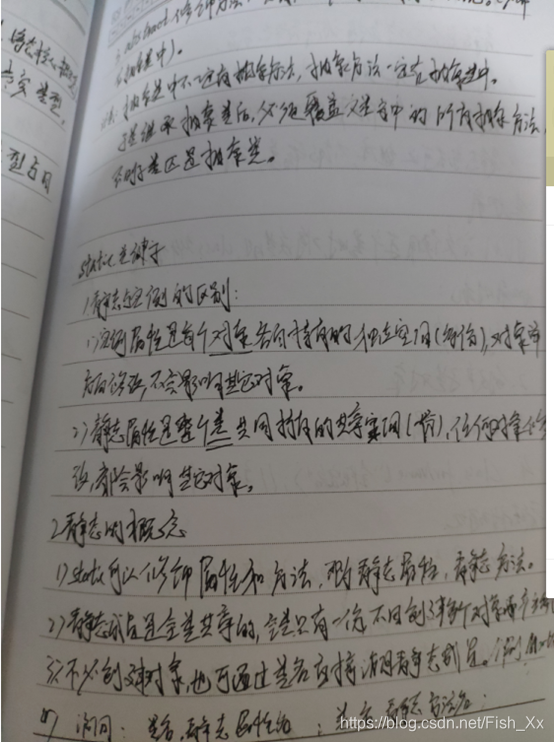 abstract修饰方法,
(抽象类中)。
抽象类中不一定有抽象方法,抽象方法一定在抽象类中。
子类继承抽象类后,必须覆盖父类中的所有抽象方法,
否则子类还是抽象类。
static关键字
1)静态与实例的区别:
1)实例属性是每个对象各自持有的独立空间(多份),对象单
方面修改,不会影响其它对象。
2)静态属性是整个类共同持有的共享空间(一份),任何对象修
改,都会影响其它对象。
2.静态的概念
1)static可以修饰属性和方法,称静态属性,静态方法。
2)静态成员是全类共享的,全类只有一份,不因创建多个对象而产生
3)不必创建对象,也可通过类名直接访问静态成员。
访问:类名.静态属性名;类名.静态方法名;
https://blog.csdn.net/Fish_Xx